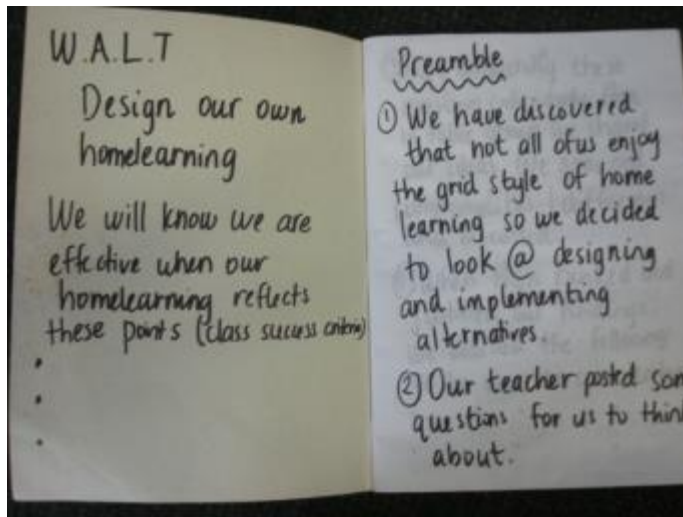 W.A.L.T
Design our own
homelearning
We will know we are
effective when our
homelearning reflects
these points (class success criteria)
•
•
•
Preamble
① We have discovered
that not all of us enjoy
the grid style of home
learning so we decided
to look @ designing
and implementing
alternatives.
② Our teacher posted som
questions for us to think
about.